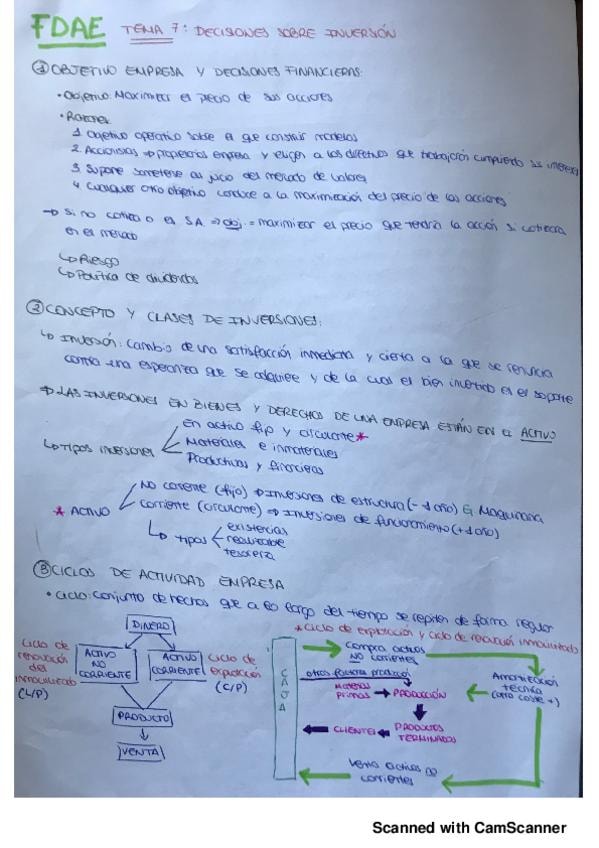 FDAE TEMA 7: DECISIONES SOBRE INVERSIÓN
① OBJETIVO EMPRESA Y DECISIONES FINANCIERAS:
• Objetivo: Maximizar el precio de sus acciones
• Razones:
1. Objetivo operativo sobre el que construir modelos
2. Accionistas ⇒ propietarios empresa y eligen a los directivos que trabajarán cumpliendo sus intereses
3. Supone someterse al juicio del mercado de valores
4. Cualquier otro objetivo conduce a la maximización del precio de las acciones
→ Si no cotiza o es S.A. ⇒ obj. = maximizar el precio que tendría la acción si cotizara
en el mercado
↳ Riesgo
↳ Política de dividendos
② CONCEPTO Y CLASES DE INVERSIONES:
↳ Inversión: cambio de una satisfacción inmediata y cierta a la que se renuncia
contra una esperanza que se adquiere y de la cual el bien invertido es el soporte
⇒ LAS INVERSIONES EN BIENES Y DERECHOS DE UNA EMPRESA ESTÁN EN EL ACTIVO
↳ Tipos inversiones
En activo fijo y circulante *
Materiales e inmateriales
Productivas y financieras
* ACTIVO
No corriente (fijo) ⇒ Inversiones de estructura (- 1 año) Maquinaria
Corriente (circulante) ⇒ Inversiones de funcionamiento (+ 1 año)
↳ tipos
existencias
realizable
tesorería
③ CICLOS DE ACTIVIDAD EMPRESA
• Ciclo: Conjunto de hechos que a lo largo del tiempo se repiten de forma regular
DINERO
Ciclo de renovación del inmovilizado (L/P)
ACTIVO NO CORRIENTE
ACTIVO CORRIENTE
Ciclo de explotación (C/P)
PRODUCTO
VENTA
* Ciclo de explotación y ciclo de renovación inmovilizado
CAJA
Compra activos NO corrientes
otros factores
Materias primas → PRODUCCIÓN
Amortización técnica (otro coste +)
CLIENTES
PRODUCTOS TERMINADOS
Venta activos no corrientes
Scanned with CamScanner